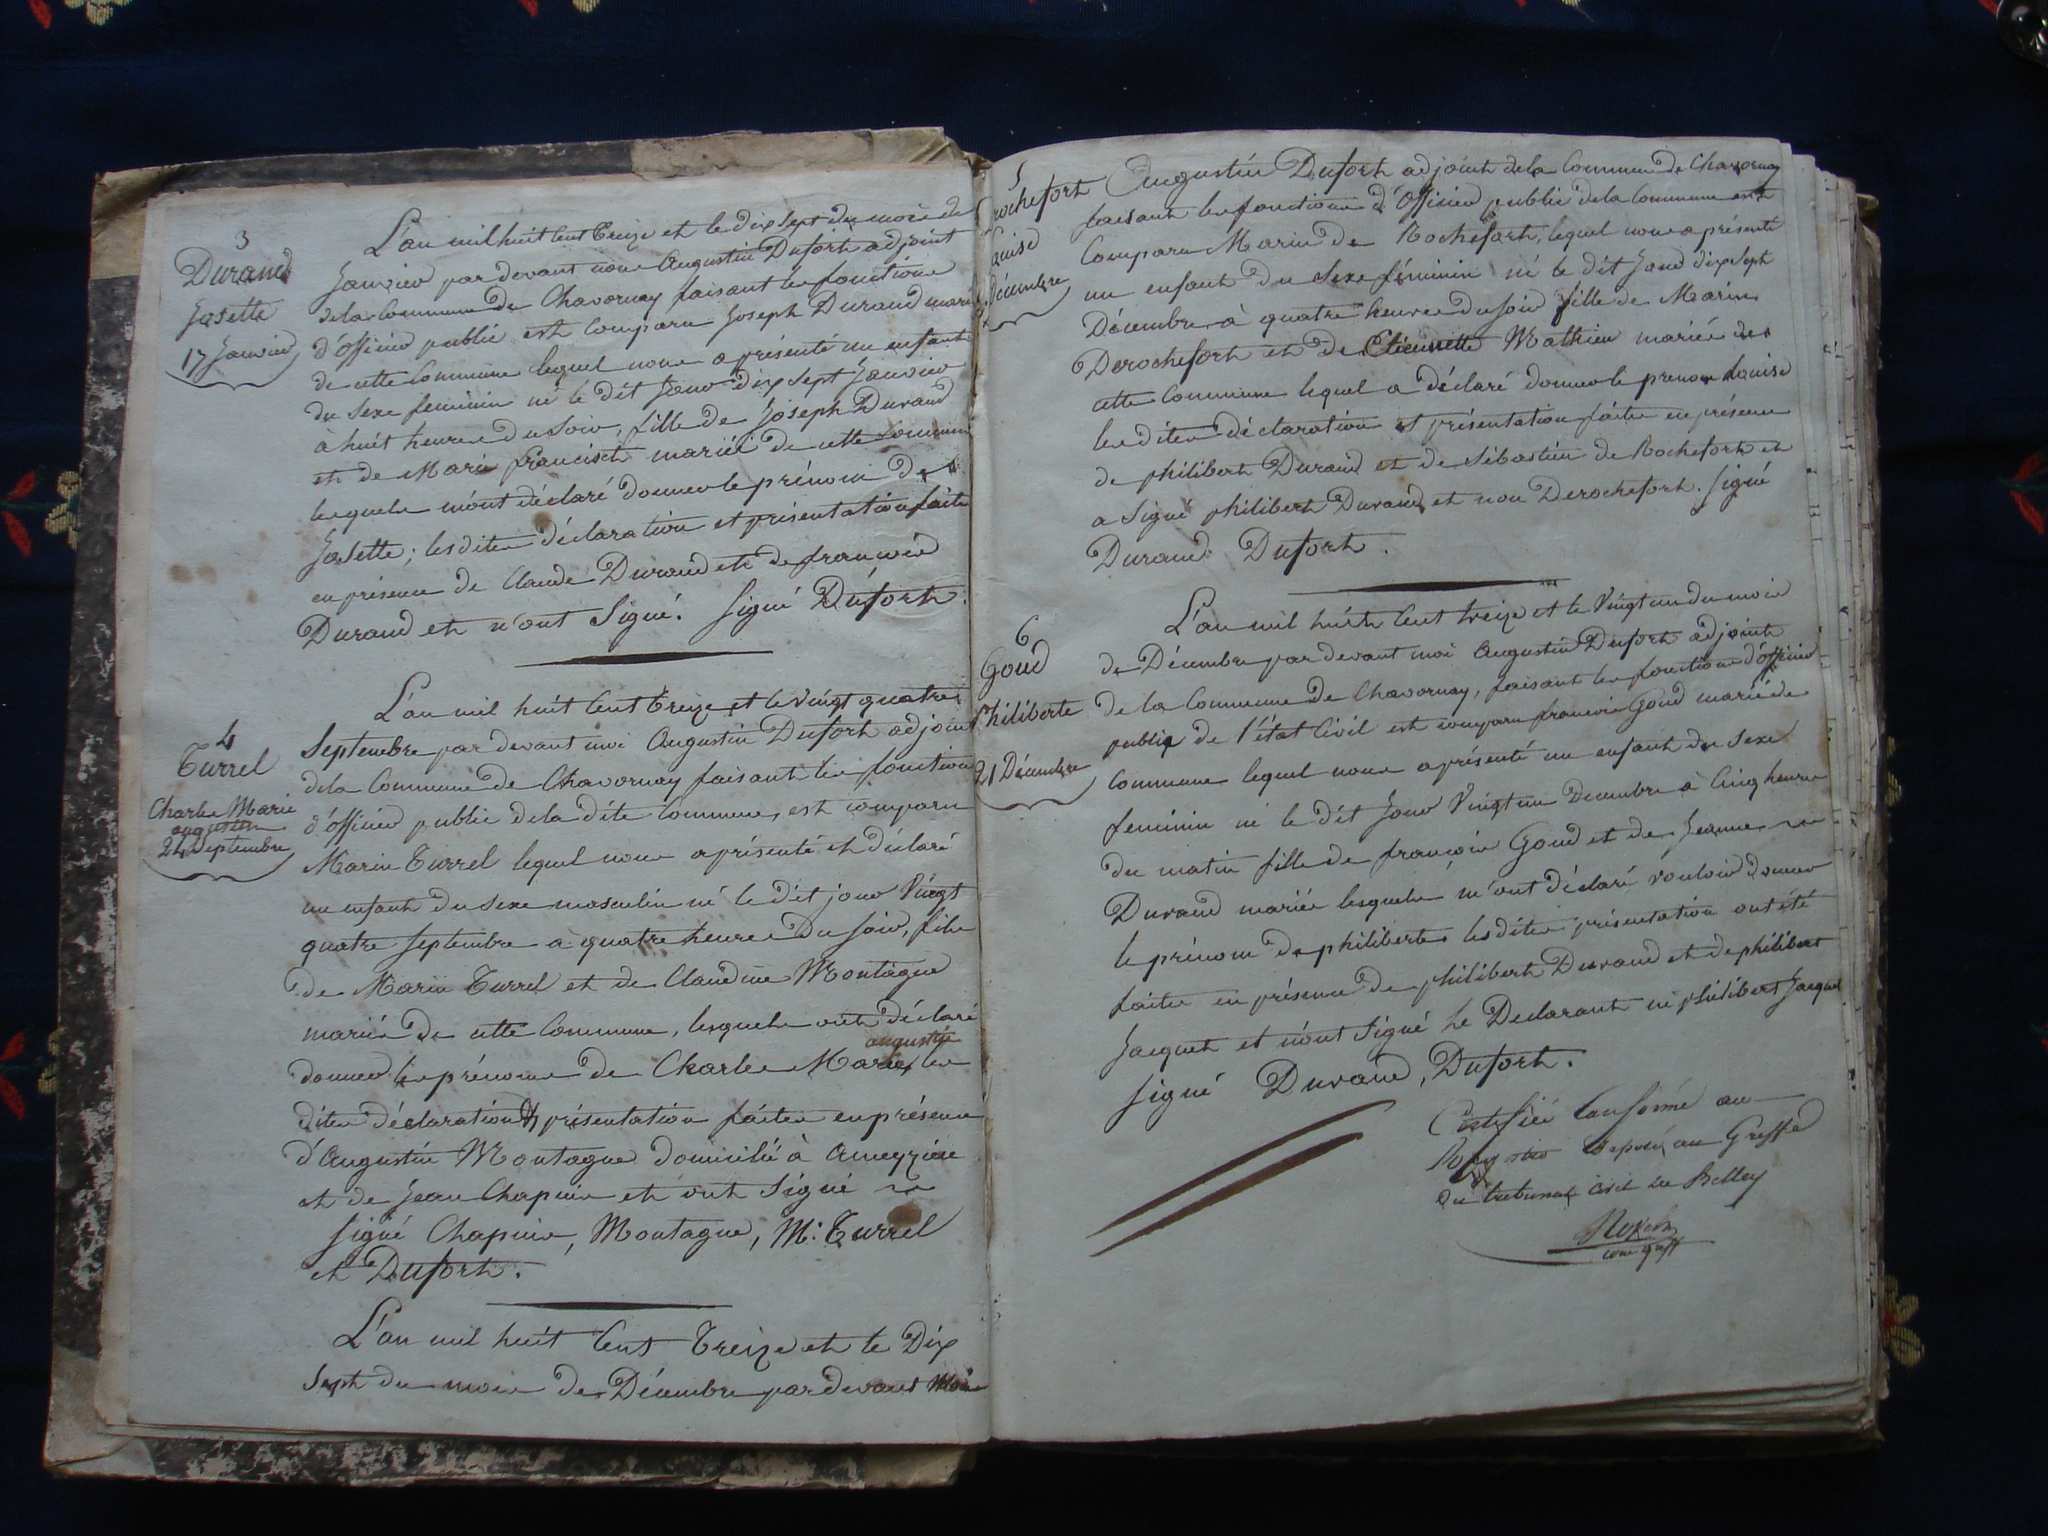 3
Durand
Josette
17 Janvier
L'an mil huit Cent Treize et le dix sept du mois de
Janvier par devant nous Augustin Dufort adjoint
de la Commune de Chavornay faisant les fonctions
d'Officier public est Comparu Joseph Durand marié
de cette Commune lequel nous a présenté un enfant
du Sexe feminin né le dit Jour dix sept Janvier
à huit heures du Soir, fille de Joseph Durand
et de Marie francisch mariés de cette Commune
lesquels m'ont déclaré donner le prénom de
Josette; les dites déclaration et présentation faite
en présence de Claude Durand et de françois
Durand et n'ont Signé. Signé Dufort.
4
Turrel
Charles Marie
augustin
24 Septembre
L'an mil huit Cent Treize et le vingt quatre
Septembre par devant moi Augustin Dufort adjoint
de la Commune de Chavornay faisant les fonctions
d'Officier public de la dite Commune, est comparu
Marin Turrel lequel nous a présenté et déclaré
un enfant du Sexe masculin né le dit jour Vingt
quatre Septembre à quatre heures du Soir, fils
de Marin Turrel et de Claudine Montagne
mariés de cette Commune, lesquels ont déclaré
augustin
donner les prénoms de Charles Marie, les
dites déclaration & présentation faites en présence
d'Augustin Montagne domicilié à Ameyzieu
et de Jean Chapuis et ont Signé
Signé Chapuis, Montagne, M: Turrel
et Dufort.
L'an mil huit Cent Treize et le Dix
Sept du mois de Décembre par devant Moi
5
rochefort
ouise
décembre
Augustin Dufort adjoint de la Commune de Chavornay
faisant les fonctions d'Officier public de la Commune est
Comparu Marin de Rochefort, lequel nous a présenté
un enfant du Sexe féminin né le dit Jour dix Sept
Décembre à quatre heures du Soir fille de Marin
Derochefort et de Etiennette Mathieu mariés de
cette Commune lequel a déclaré donner le prenom Louise
les dites déclaration et présentation faites en présence
de philibert Durand et de Sébastien de Rochefort et
a Signé philibert Durand et non Derochefort. Signé
Durand Dufort.
6
Goud
Philiberte
21 Décembre
L'an mil huit Cent treize et le Vingt un du mois
de Décembre par devant moi Augustin Dufort adjoint
de la Commune de Chavornay, faisant les fonctions d'officier
public de l'état Civil est comparu francois Goud marié de
Commune lequel nous a présenté un enfant du Sexe
feminin né le dit Jour Vingt un Decembre à Cinq heures
du matin fille de francois Goud et de Jeanne
Durand mariés lesquels m'ont déclaré vouloir donner
le prénom de philiberte les dites présentation ont été
faites en présence de philibert Durand et de philibert
Jacquet et n'ont Signé le Declarant ni philibert Jacquet
Signé Durand, Dufort.
Certifié Conforme au
Registre déposé au Greffe
du tribunal civil de Belley